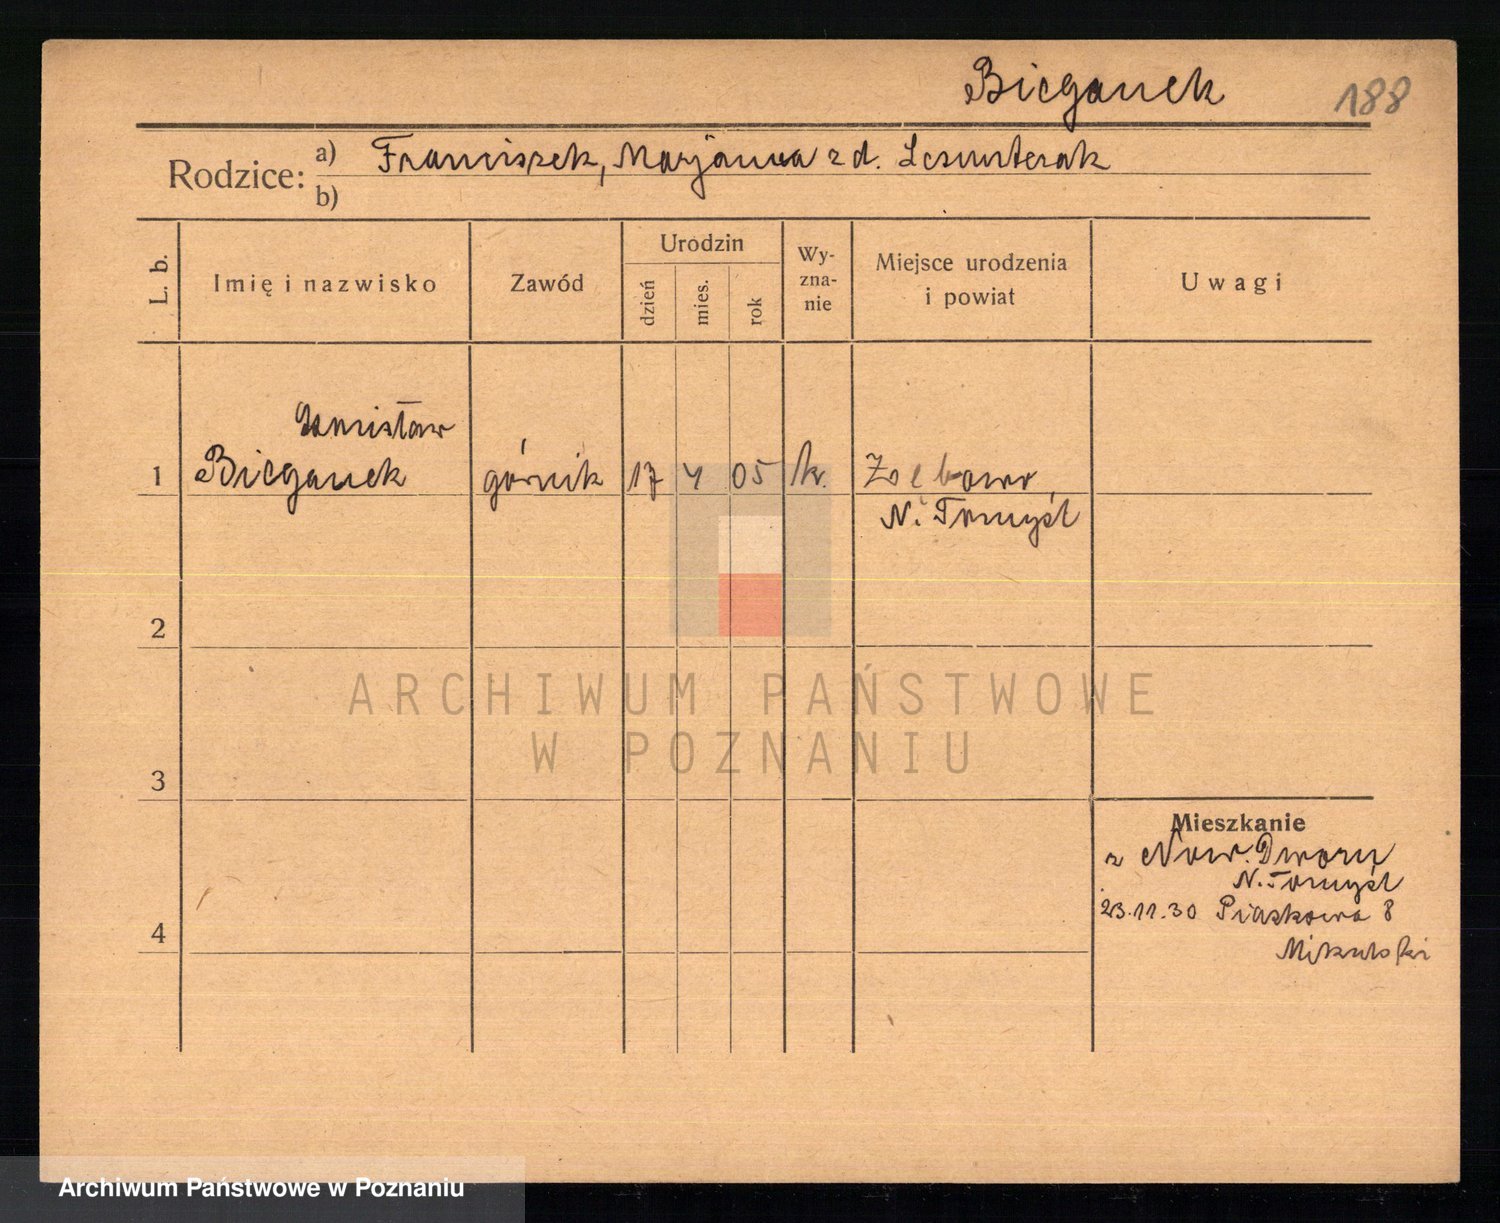 Bieganek 188
Rodzice: a) Franciszek, Marjanna z d.
b)
L. b.
Imię i nazwisko
Zawód
Urodzin
dzień
mies.
rok
Wy-
zna-
nie
Miejsce urodzenia
i powiat
Uwagi
Stanisław
1 Bieganek górnik 17 4 05 rk. Zębowo,
N. Tomyśl
2
3
4
ARCHIWUM PAŃSTWOWE
W POZNANIU
Mieszkanie
z Now. Dworu
N. Tomyśl
23.11.30 Piaskowa 8
Mikulski
Archiwum Państwowe w Poznaniu